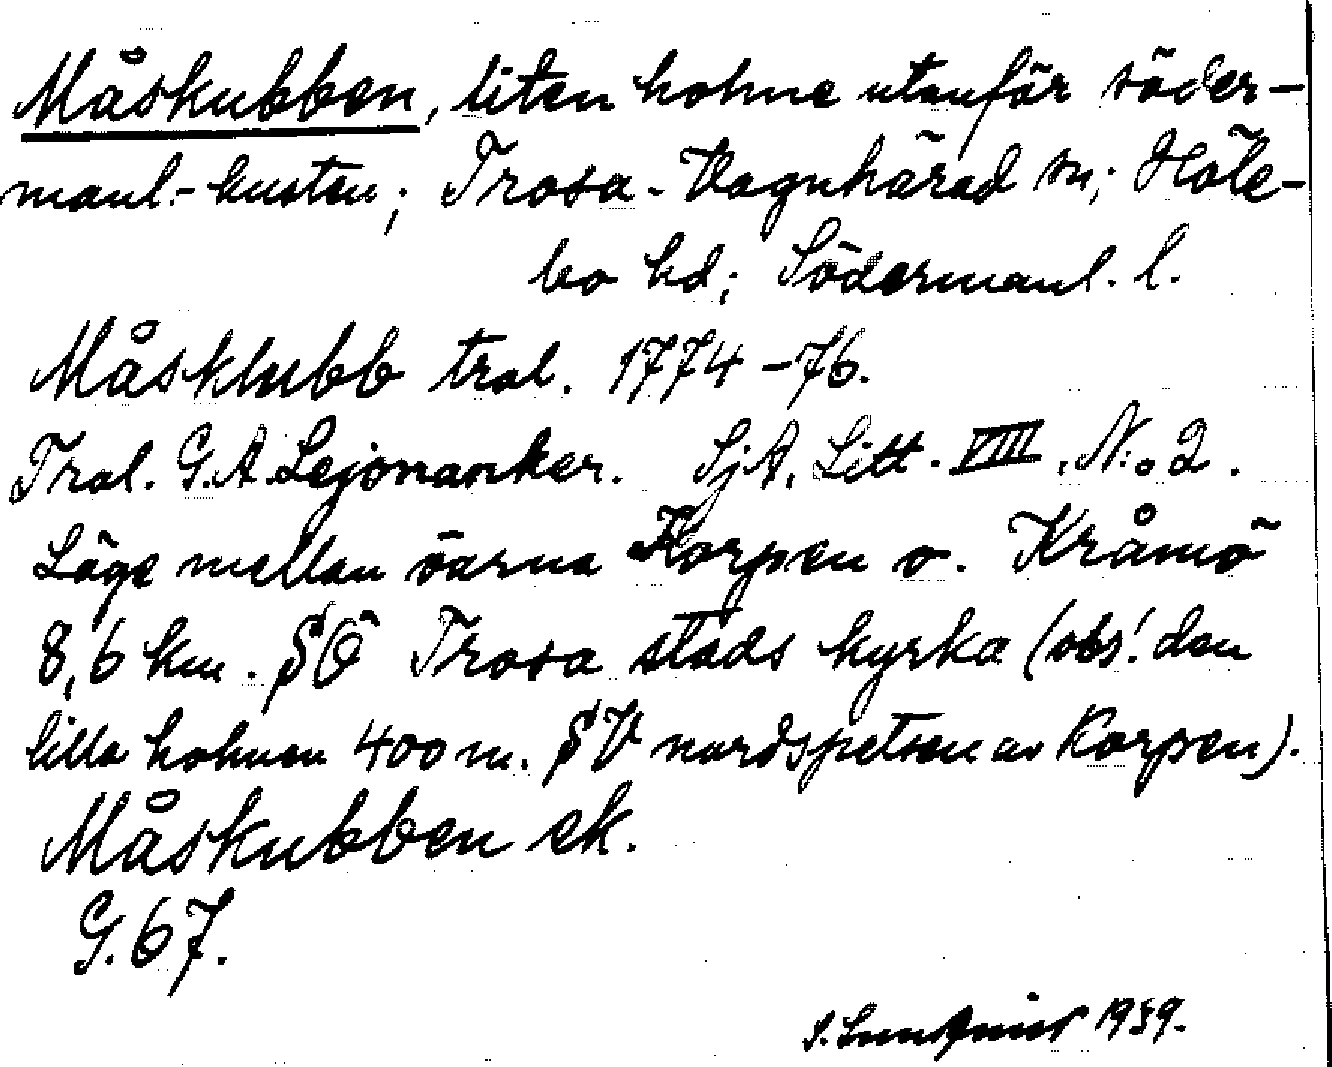 Måskubben, liten holme utanför söder-
manl.-kusten; Trosa-Vagnhärad sn; Höle-
bo hd; Södermanl. l.
Måsklubb tral. 1774-76.
Tral. G.A. Lejonanker. SjA. Litt. VIII. N:o 2.
Läge mellan öarna Korpen o. Kråmö
8,6 km. SÖ Trosa stads kyrka (obs! den
lilla holmen 400 m. SV nordspetsen av Korpen).
Måskubben ek.
G. 67.
S. Lundqvist 1939.